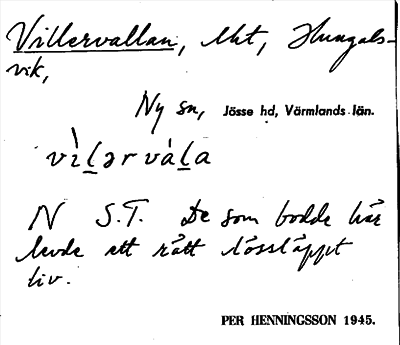 Villervallan, lht, Hungals-
vik,
Ny sn, Jösse hd, Värmlands län.
vìlərvála
N S.T. De som bodde här
levde ett rätt lössläppt
liv.
PER HENNINGSSON 1945.